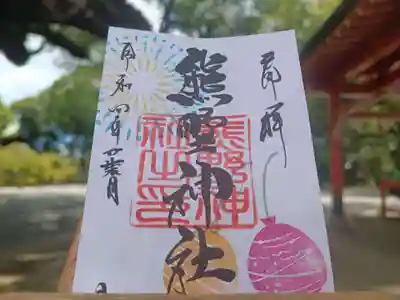 奉拝
熊野神社
熊野神
社之印
令和四年
葉月
日